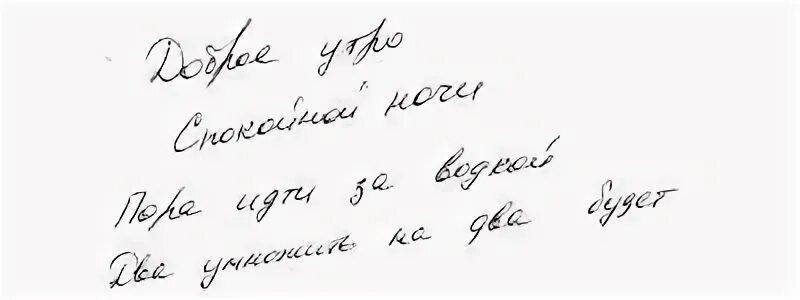 Доброе утро
Спокойной ночи
Пора идти за водкой
Два умножить на два будет